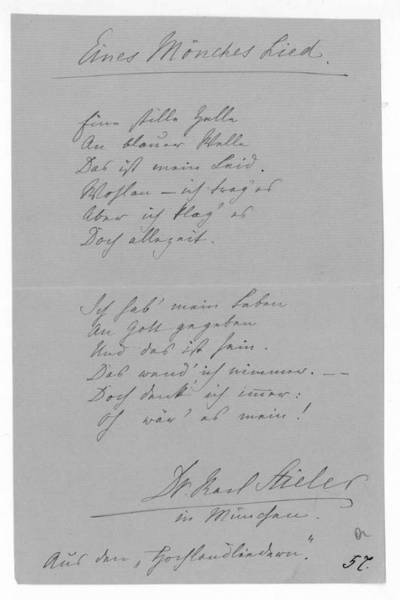 Eines Mönches Lied.
Eine stille Zelle
An blauer Welle
Das ist mein Leid.
Wohlan – ich trag' es
Aber ich klag' es
Doch allezeit.
Ich hab' mein Leben
An Gott gegeben
Und das ist sein.
Das wend' ich nimmer. –
Doch denk' ich immer:
Oh wär' es mein!
Dr. Karl Stieler
in München.
Aus den „Hochlandliedern".
57.